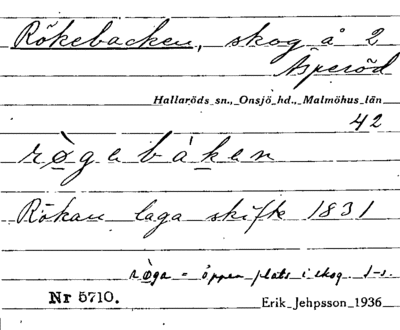 Rökebacken, skog å 2
Äsperöd
Hallaröds sn., Onsjö hd., Malmöhus län
42
rø̀gabáken
Rökan laga skifte 1831
rø̀ga = öppen plats i skog. I-s.
Nr 5710.
Erik Jehpsson 1936